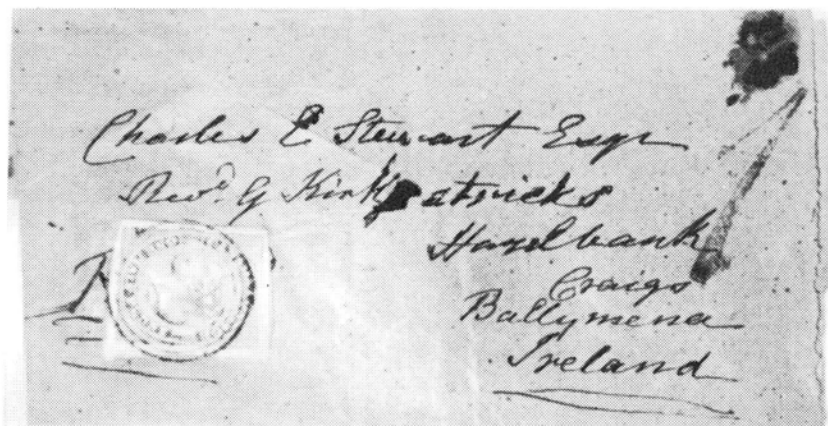 Charles E Stewart Esqr
Revd. G Kirkpatricks
Hazelbank
Craigs
Ballymena
Ireland